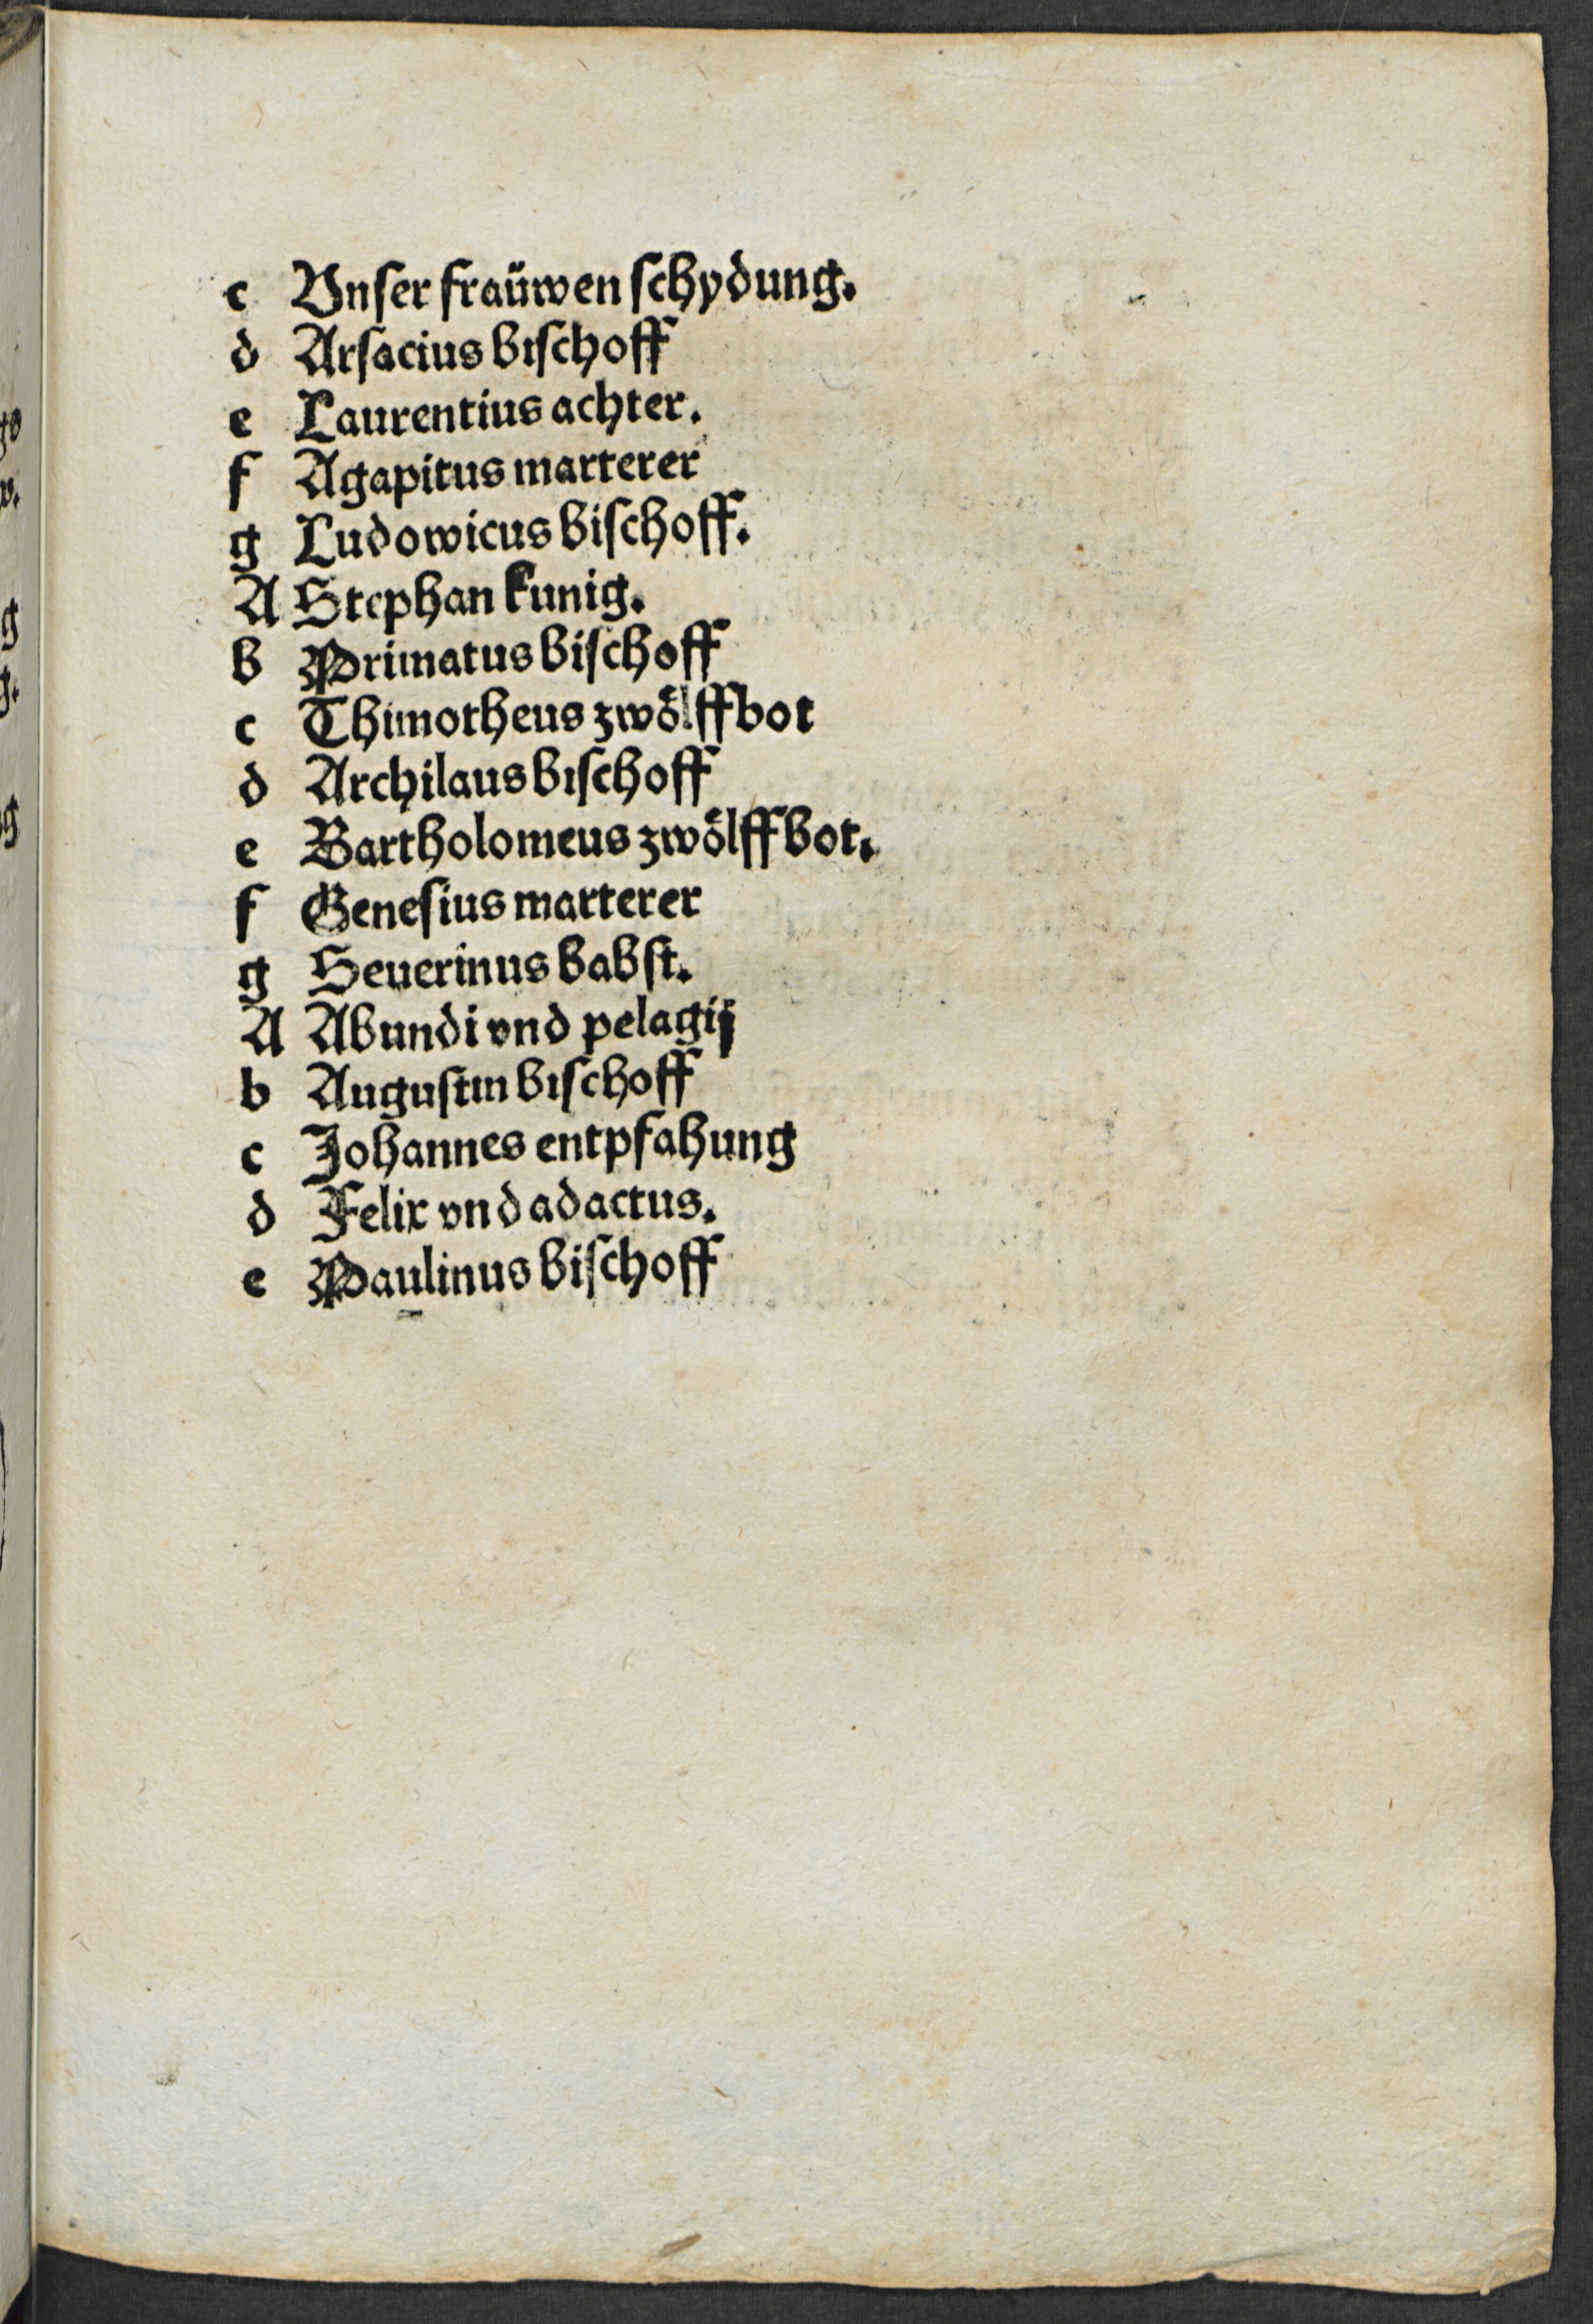 c Vnſer fraüwen ſchydung.
d Arſacius biſchoff
e Laurentius achter.
f Agapitus marterer
g Ludowicus biſchoff.
A Stephan kunig.
b Primatus biſchoff
c Thimotheus zwölffbot
d Archilaus biſchoff
e Bartholomeus zwölffbot.
f Geneſius marterer
g Seuerinus babſt.
A Abundi vnd pelagij
b Auguſtin biſchoff
c Johannes entpfahung
d Felix vnd adactus.
e Paulinus biſchoff